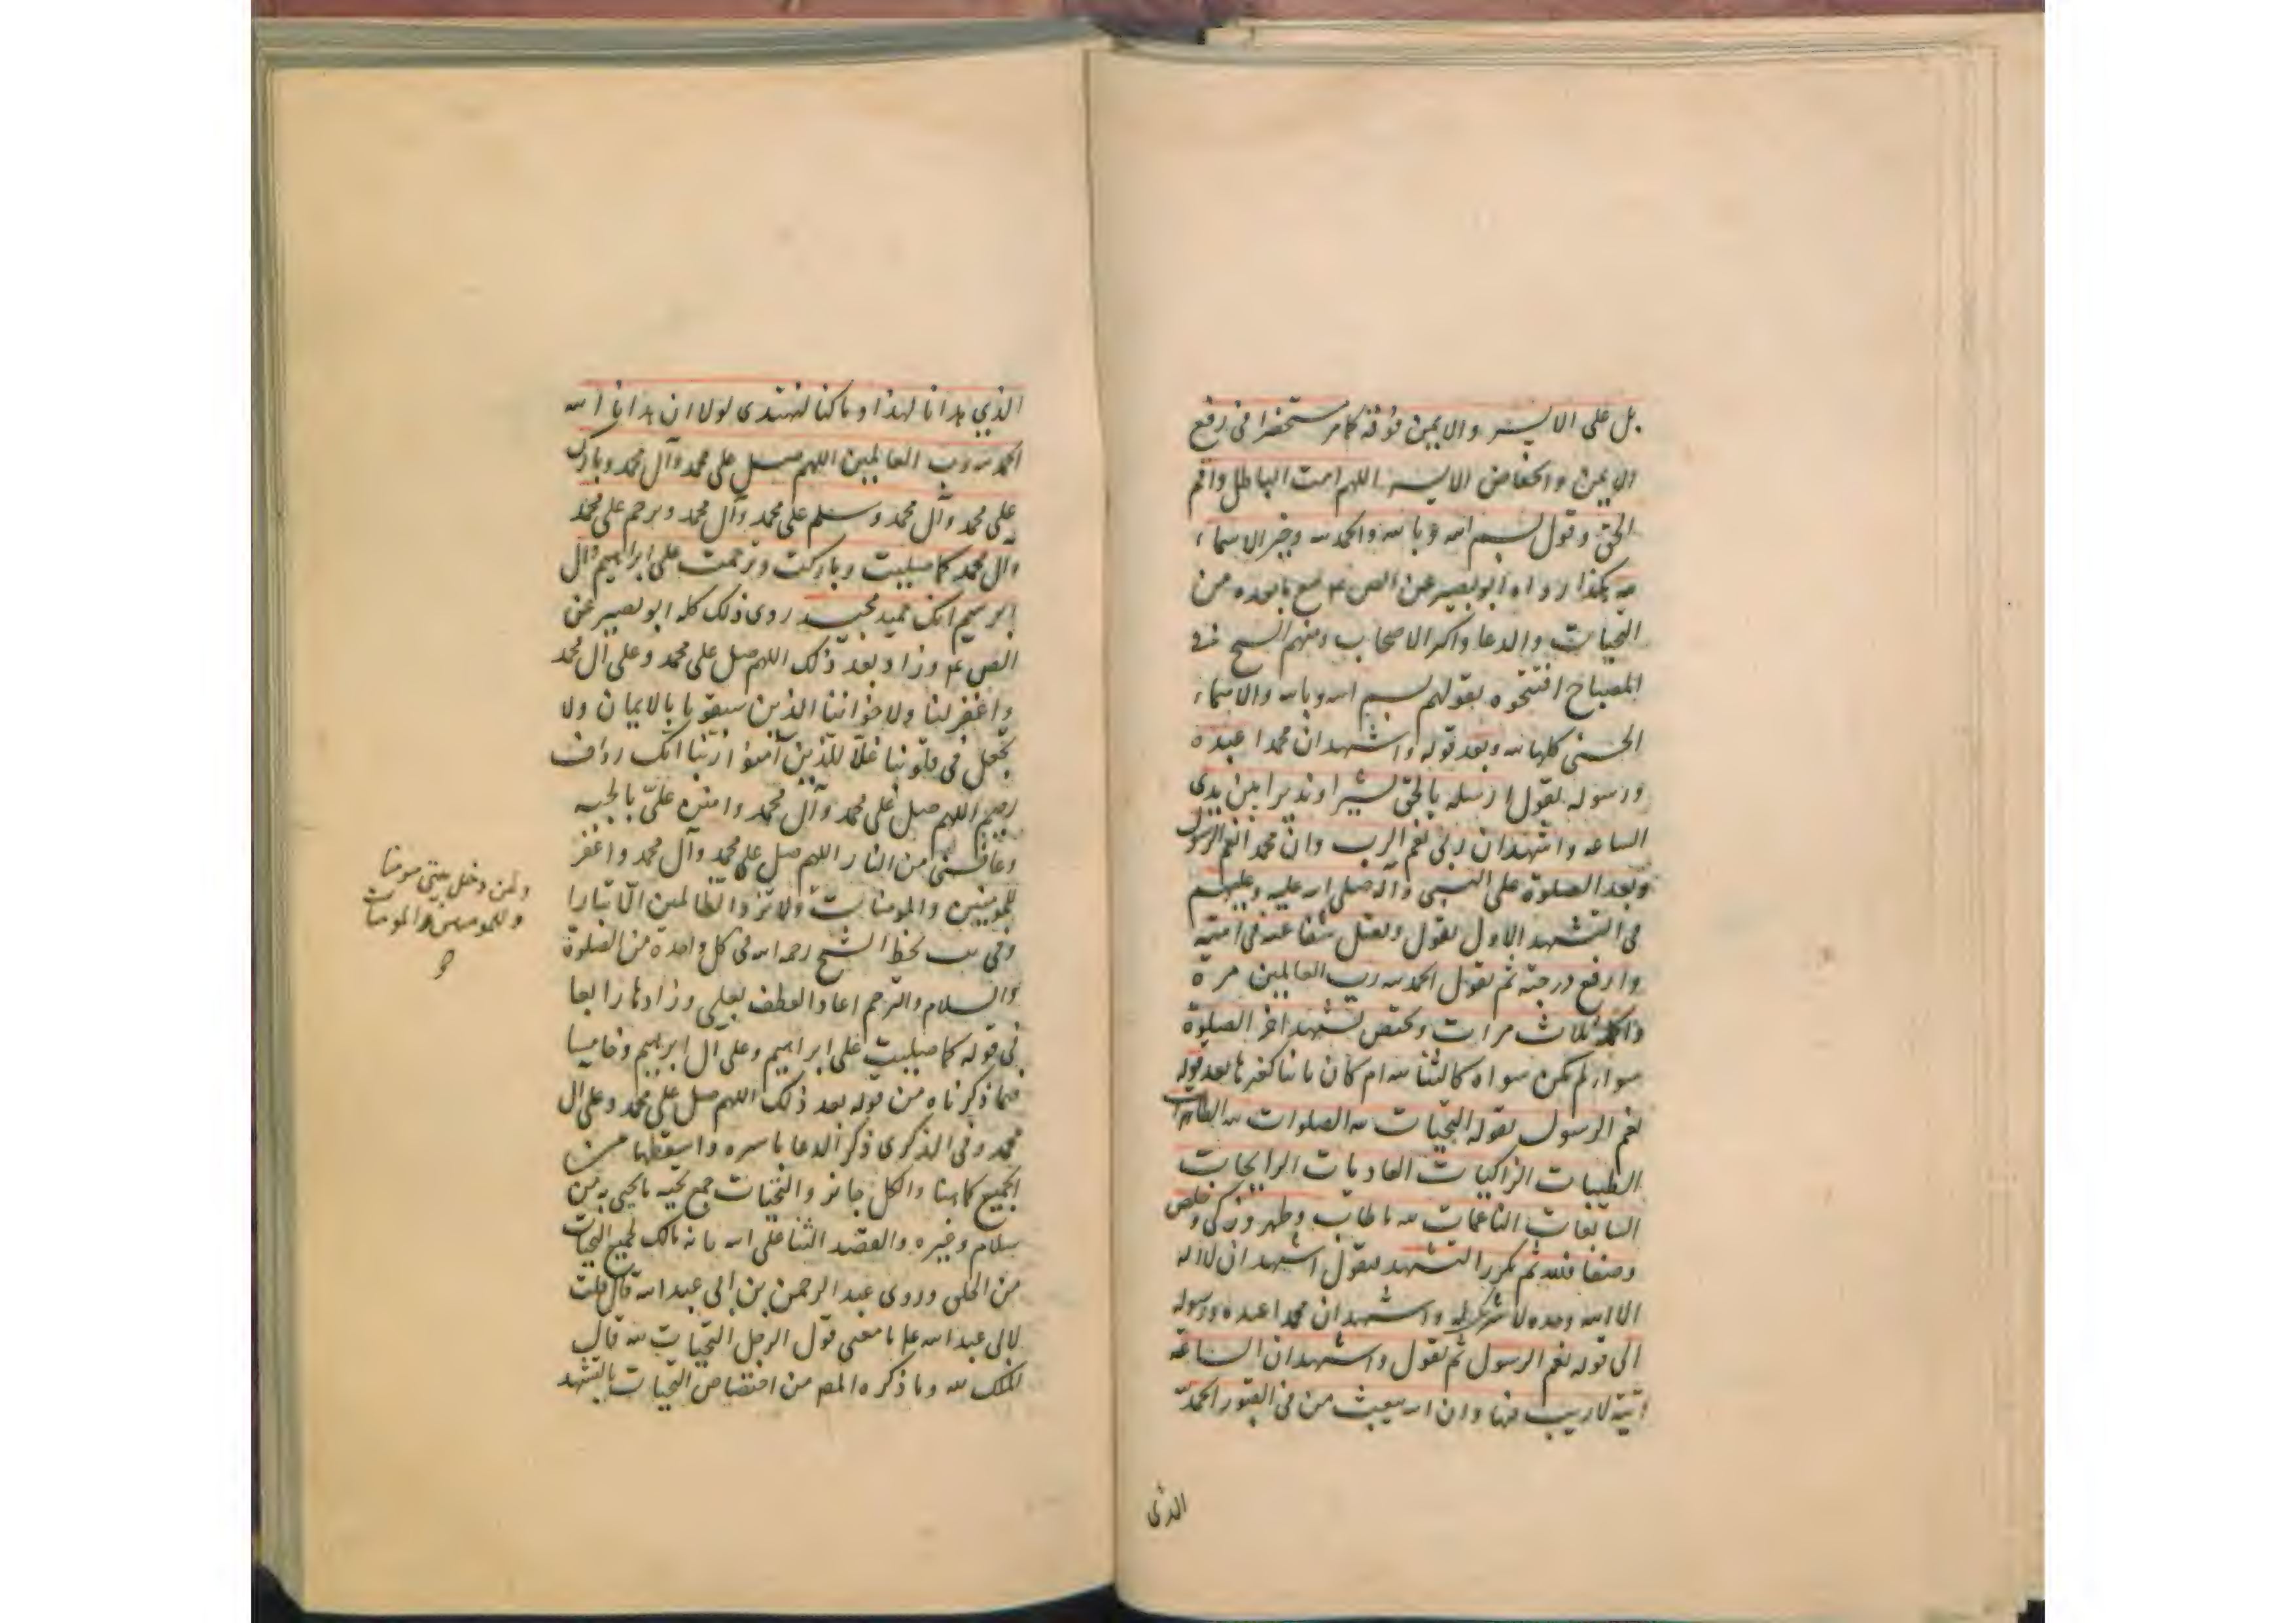 بل على الايسر والايمن فوقه كما مر مستحضرا فى رفع
الايمن وانخفاض الايسر اللهم امت الباطل واقم
الحق وقول بسم الله وبالله والحمد لله وخير الاسماء
لله هكذا رواه ابو بصير عن الص ع مع ما بعده من
التحيات والدعا واكثر الاصحاب ومنهم الشيخ فى
المصباح افتتحوه بقولهم بسم الله وبالله والاسماء
الحسنى كلها لله وبعد قوله واشهد ان محمدا عبده
ورسوله يقول ارسله بالحق بشيرا ونذيرا بين يدى
الساعه واشهد ان ربى نعم الرب وان محمدا نعم الرسول
وبعد الصلوة على النبى وآله صلى الله عليه وعليهم
فى التشهد الاول يقول وتقبل شفاعته فى امته
وارفع درجته ثم تقول الحمد لله رب العالمين مرة
واكمله ثلاث مرات ويختص تشهد اخر الصلوة
سواء لم يكن سواه كالثنائيه ام كان ثانيا كغيرها بعد قوله
نعم الرسول بقوله التحيات لله الصلوات لله الطاهرات
الطيبات الزاكيات الغاديات الرايحات
السابغات الناعمات لله ما طاب وطهر وزكى وخلص
وصفا فلله ثم يكرر التشهد فيقول اشهد ان لا اله
الا الله وحده لا شريك له واشهد ان محمدا عبده ورسوله
الى قوله نعم الرسول ثم تقول واشهد ان الساعة
آتية لا ريب فيها وان الله يبعث من فى القبور الحمد لله
الذى
الذي هدانا لهذا وما كنا لنهتدى لولا ان هدانا الله
الحمد لله رب العالمين اللهم صل على محمد وآل محمد وبارك
على محمد وآل محمد وسلم على محمد وآل محمد وترحم على محمد
وآل محمد كما صليت وباركت وترحمت على ابراهيم وآل
ابرهيم انك حميد مجيد روى ذلك كله ابو بصير عن
الص ع وزاد بعد ذلك اللهم صل على محمد وعلى آل محمد
واغفر لنا ولاخواننا الذين سبقونا بالايمان ولا
تجعل فى قلوبنا غلا للذين آمنوا ربنا انك رؤف
رحيم اللهم صل على محمد وآل محمد وامنن علىّ بالجنه
وعافنى من النار اللهم صل على محمد وآل محمد واغفر
للمومنين والمومنات ولا تزد الظالمين الا تبارا
وفى يب بخط الشيخ رحمه الله فى كل واحدة من الصلوة
والسلام والترحم اعاد العطف بعلى وزادها رابعا
فى قوله كما صليت على ابراهيم وعلى آل ابرهيم وخامسا
فيما ذكرناه من قوله بعد ذلك اللهم صل على محمد وعلى آل
محمد وفى الذكرى ذكر الدعا باسره واسقطها من
الجميع كما هنا والكل جائز والتحيات جمع تحيه ما يحيى به من
سلام وغيره والقصد الثنا على الله بانه مالك لجميع التحيات
من الخلق وروى عبد الرحمن بن ابى عبد الله قال قلت
لابى عبد الله ع ما معنى قول الرجل التحيات لله قال
الملك لله وما ذكره المص من اختصاص التحيات بالتشهد
ولمن دخل بيتى مومنا
وللمومنين والمومنات